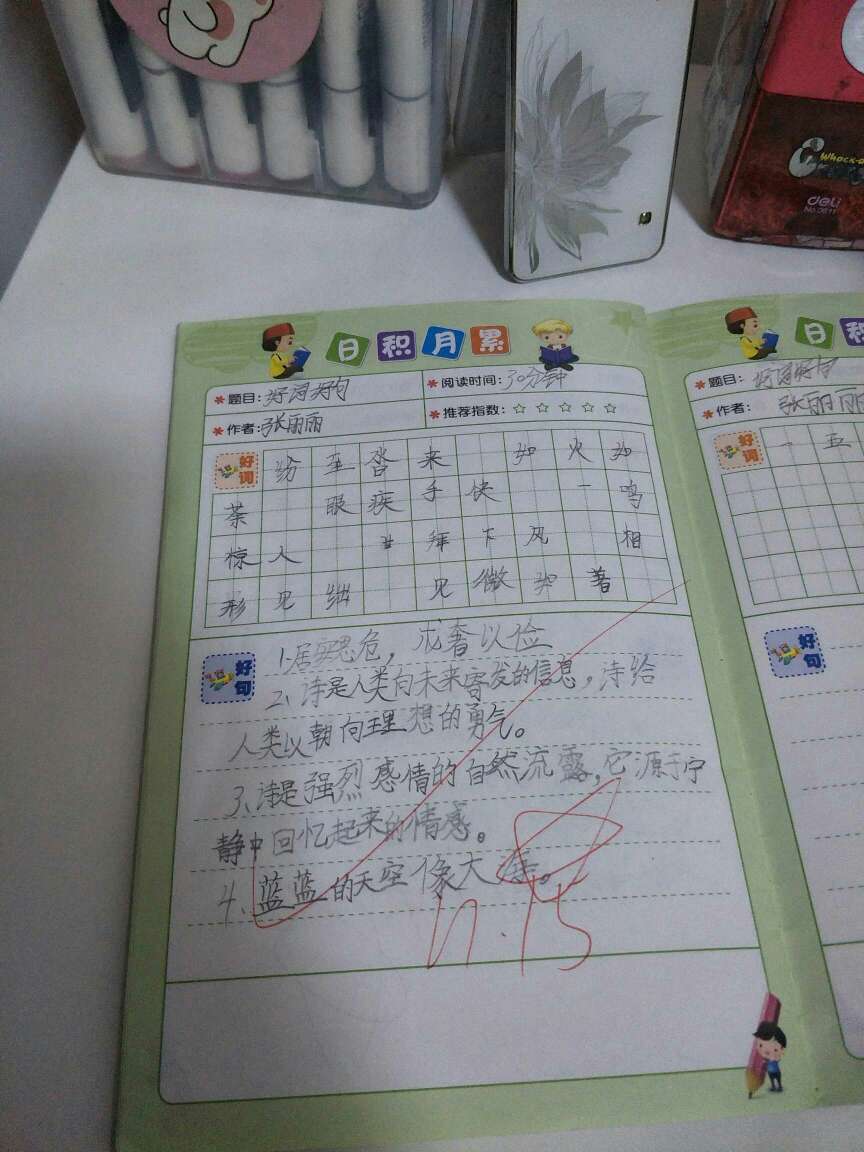 Whack-a
deli
日积月累
题目: 好词好句
阅读时间: 30分钟
作者: 张丽丽
推荐指数: ☆ ☆ ☆ ☆ ☆
好词
纷至沓来 如火如
荼 眼疾手快 一鸣
惊人 甘拜下风 相
形见绌 见微知著
好句
1.居安思危,戒奢以俭
2、诗是人类向未来寄发的信息,诗给
人类以朝向理想的勇气。
3、诗是强烈感情的自然流露,它源于宁
静中回忆起来的情感。
4、蓝蓝的天空像大海。
11.15
日积
题目: 好词好句
作者: 张丽丽
好词
一 五
好句